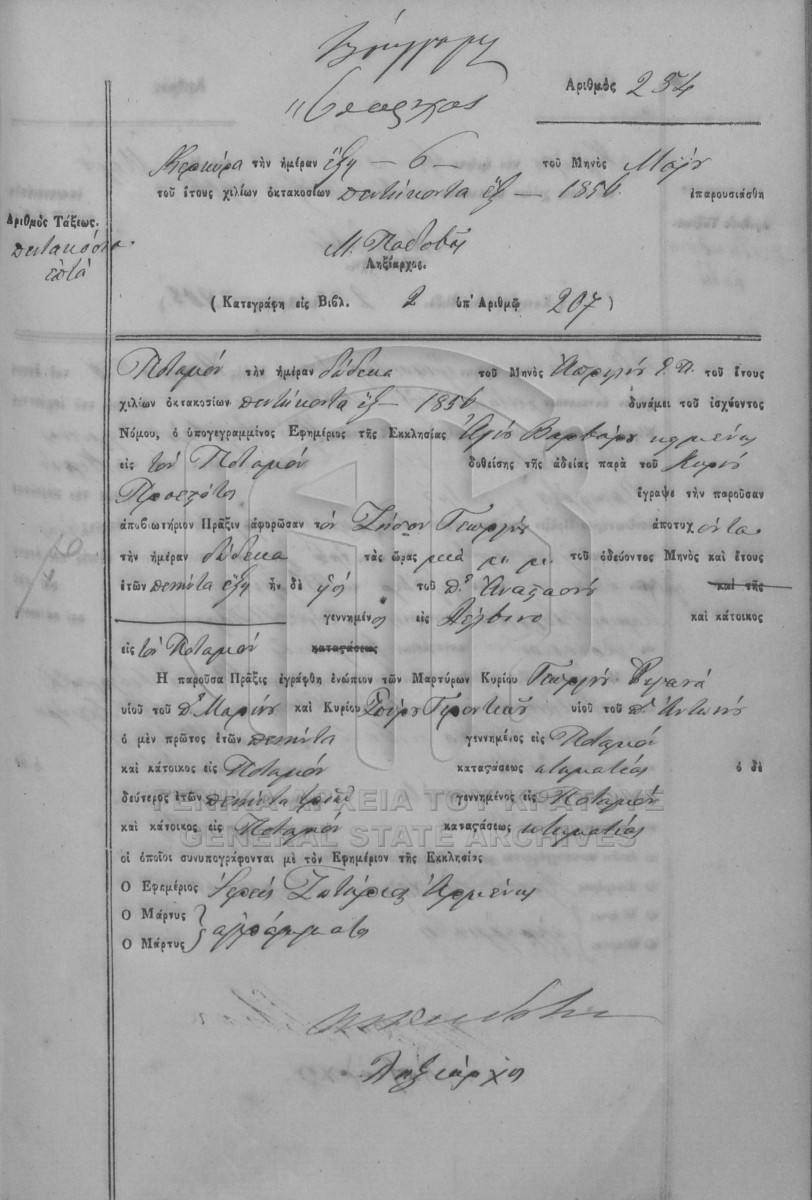 Ἀριθμὸς 234
Κερκύρα τὴν ἡμέραν ἕξη — 6 — τοῦ Μηνὸς Μαΐου
τοῦ ἔτους χιλίων ὀκτακοσίων πεντήκοντα ἕξ — 1856 ἐπαρουσιάσθη
Ἀριθμὸς Τάξεως.
πεντακόσια
ἑπτὰ
Ληξίαρχος.
(Κατεγράφη εἰς Βιβλ. 2 ὑπ' Ἀριθμῷ 207)
Ποταμὸν τὴν ἡμέραν δώδεκα τοῦ Μηνὸς Ἀπριλίου ἔ. π. τοῦ ἔτους
χιλίων ὀκτακοσίων πεντήκοντα ἕξ — 1856 δυνάμει τοῦ ἰσχύοντος
Νόμου, ὁ ὑπογεγραμμένος Ἐφημέριος τῆς Ἐκκλησίας Ἁγίας Βαρβάρας κειμένης
εἰς τὸν Ποταμὸν δοθείσης τῆς ἀδείας παρὰ τοῦ Κυρίου
Προεστῶτος ἔγραψε τὴν παροῦσαν
ἀποβιωτήριον Πρᾶξιν ἀφορῶσαν τὸν Γεωργίου ἀποτυχόντα
τὴν ἡμέραν δώδεκα τὰς ὥρας μιὰ μ. μ. τοῦ ὁδεύοντος Μηνὸς καὶ ἔτους
ἐτῶν πενήντα ἕξη ἦν δὲ υἱὸς τοῦ π. Ἀναστασίου καὶ τῆς
γεννημένος εἰς Δέλβινο καὶ κάτοικος
εἰς τὸν Ποταμὸν καταστάσεως
Ἡ παροῦσα Πρᾶξις ἐγράφθη ἐνώπιον τῶν Μαρτύρων Κυρίου Γεωργίου
υἱοῦ τοῦ π. Μαρίνου καὶ Κυρίου Σπύρου υἱοῦ τοῦ π. Ἀντωνίου
ὁ μὲν πρῶτος ἐτῶν πενήντα γεννημένος εἰς Ποταμὸν
καὶ κάτοικος εἰς Ποταμὸν καταστάσεως κτηματίας ὁ δὲ
δεύτερος ἐτῶν πενήντα γεννημένος εἰς Ποταμὸν
καὶ κάτοικος εἰς Ποταμὸν καταστάσεως κτηματίας
οἱ ὁποῖοι συνυπογράφονται μὲ τὸν Ἐφημέριον τῆς Ἐκκλησίας
Ὁ Ἐφημέριος Ἱερεὺς
Ὁ Μάρτυς
Ὁ Μάρτυς ἀγράμματοι
Ληξίαρχος
ΓΕΝΙΚΑ ΑΡΧΕΙΑ ΤΟΥ ΚΡΑΤΟΥΣ
GENERAL STATE ARCHIVES